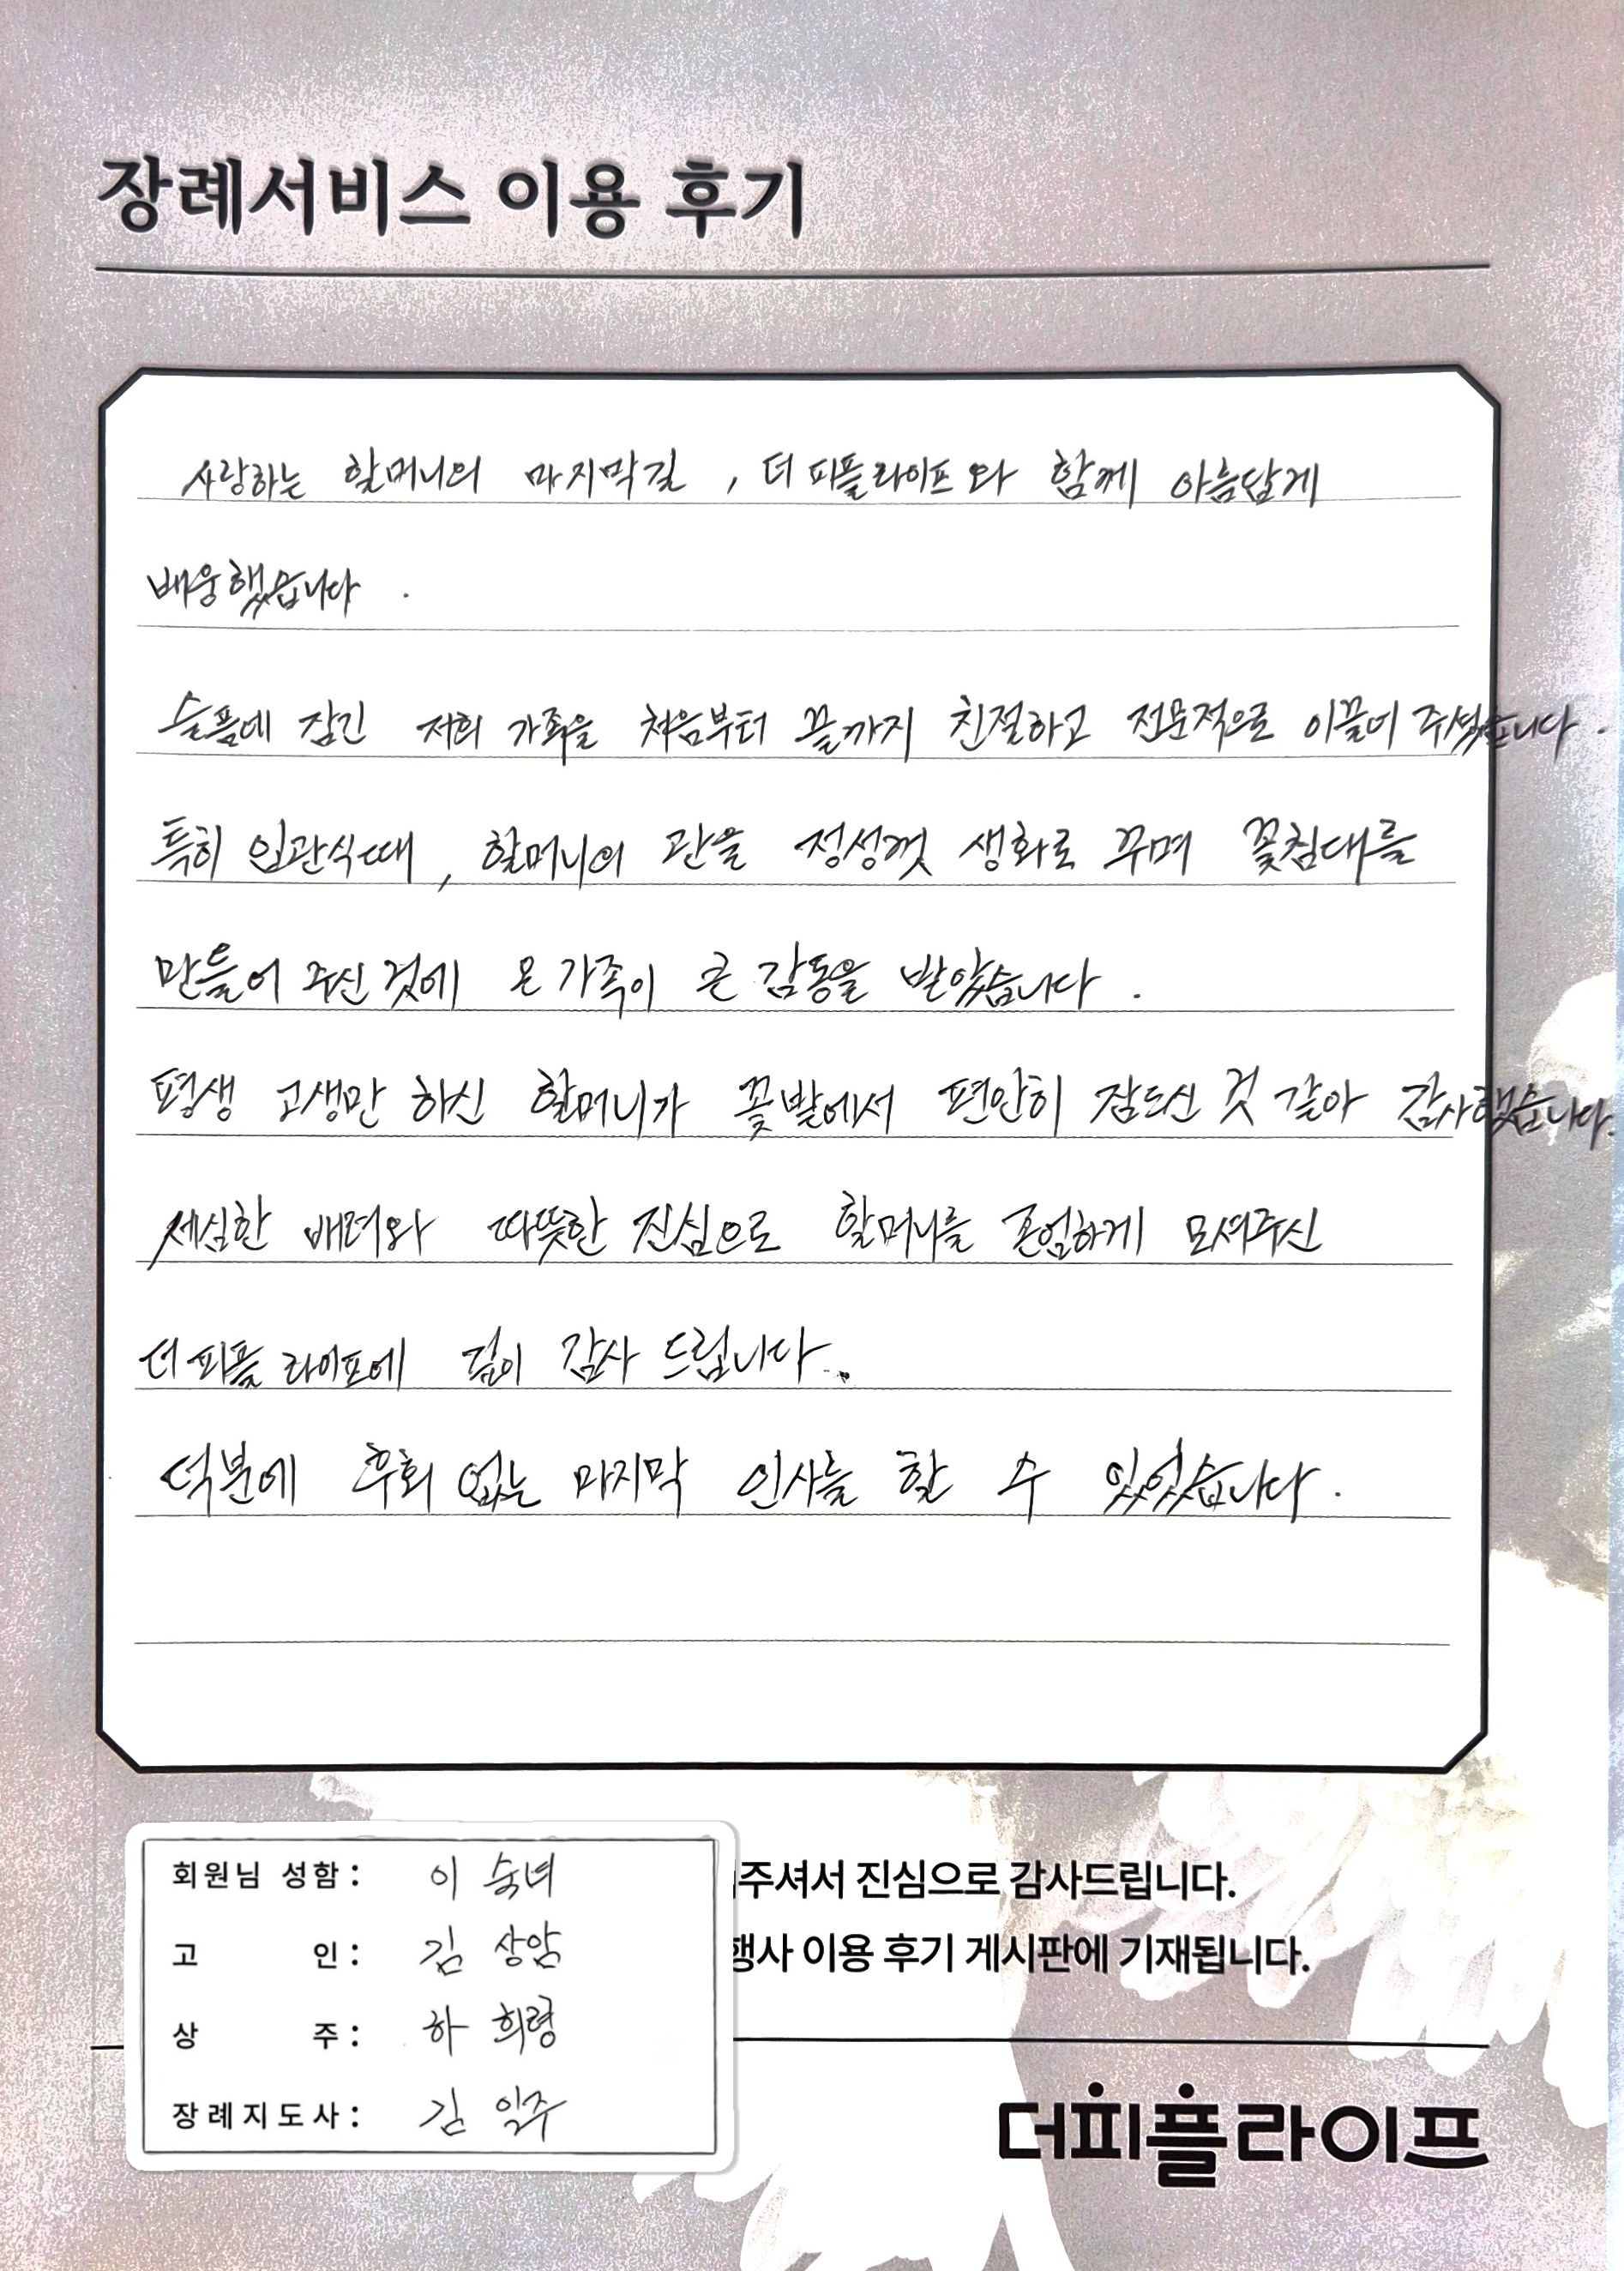 장례서비스 이용 후기
사랑하는 할머니의 마지막길, 더 피플라이프와 함께 아름답게
배웅했습니다.
슬픔에 잠긴 저희 가족을 처음부터 끝까지 친절하고 전문적으로 이끌어 주셨습니다.
특히 입관식때, 할머니의 관을 정성껏 생화로 꾸며 꽃침대를
만들어 주신 것에 온 가족이 큰 감동을 받았습니다.
평생 고생만 하신 할머니가 꽃밭에서 편안히 잠드신 것 같아 감사했습니다.
세심한 배려와 따뜻한 진심으로 할머니를 존엄하게 모셔주신
더 피플 라이프에 깊이 감사 드립니다.
덕분에 후회 없는 마지막 인사를 할 수 있었습니다.
회원님 성함: 이 숙녀
고 인: 김 상암
상 주: 하 희령
장례지도사: 김 일주
주셔서 진심으로 감사드립니다.
행사 이용 후기 게시판에 기재됩니다.
더피플라이프